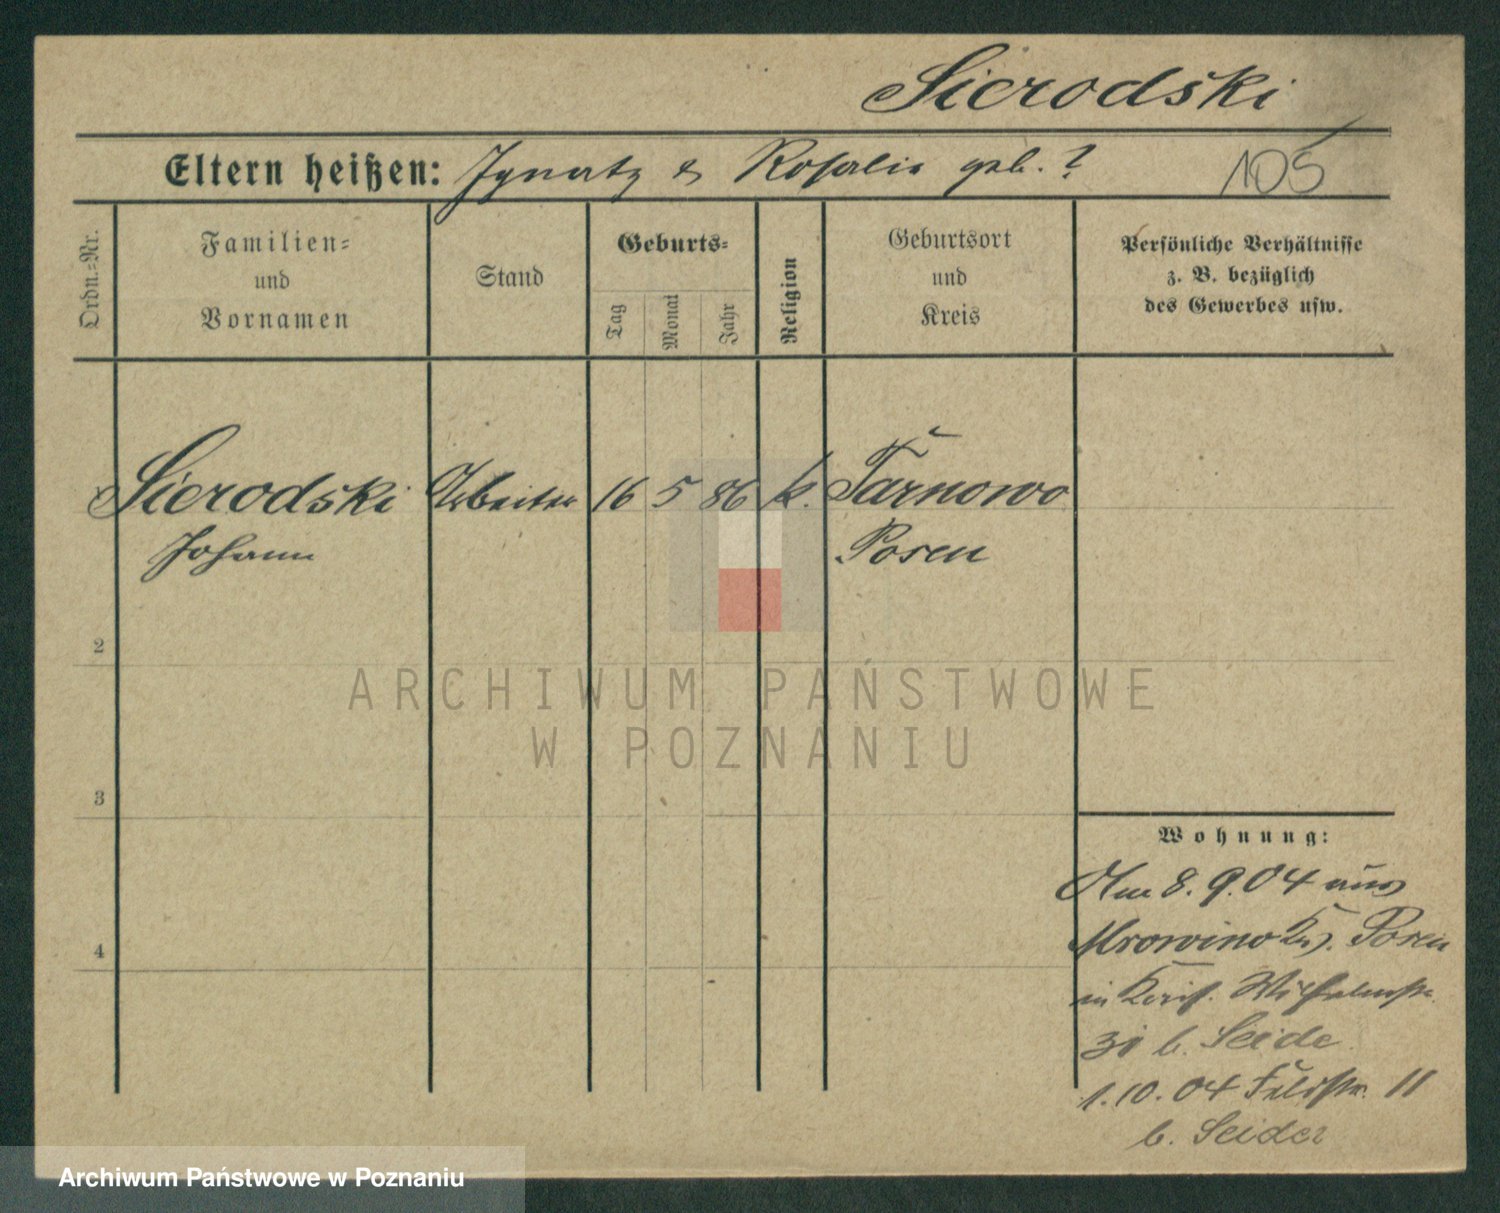 Sierodski
Eltern heißen: Ignatz & Rosalie geb. ?
105
Ordn.=Nr.
Familien=
und
Vornamen
Stand
Geburts=
Tag
Monat
Jahr
Religion
Geburtsort
und
Kreis
Persönliche Verhältnisse
z. B. bezüglich
des Gewerbes usw.
Sierodski Arbeiter 16 5 86 k. Tarnowo
Johann Posen
2
ARCHIWUM PAŃSTWOWE
W POZNANIU
3
Wohnung:
Am 8. 9. 04 aus
Mrowino Krs. Posen
in Wilhelmstr.
b. Seide
1. 10. 04 Feldstr. 11
b. Seider
4
Archiwum Państwowe w Poznaniu